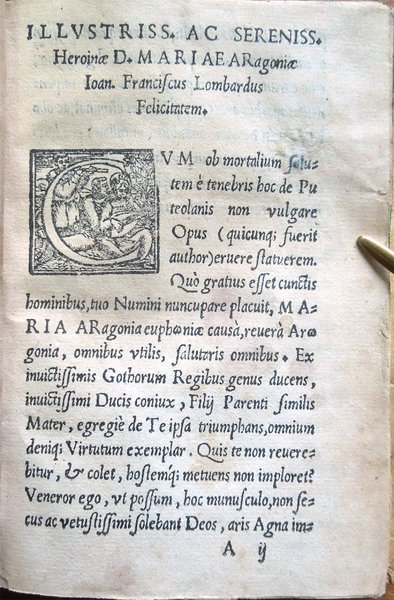 ILLVSTRISS. AC SERENISS.
Heroinæ D. MARIAE ARagoniæ
Ioan. Franciscus Lombardus
Felicitatem.
CVM ob mortalium salu-
tem è tenebris hoc de Pu
teolanis non vulgare
Opus (quicunq; fuerit
author) eruere statuerem.
Quò gratius esset cunctis
hominibus, tuo Numini nuncupare placuit, MA-
RIA ARagonia euphωniæ causa, reuerà Arω
gonia, omnibus vtilis, salutaris omnibus. Ex
inuictissimis Gothorum Regibus genus ducens,
inuictissimi Ducis coniux, Filij Parenti similis
Mater, egregiè de Te ipsa triumphans, omnium
deniq; Virtutum exemplar. Quis te non reuere-
bitur, & colet, hostemq́; metuens non imploret?
Veneror ego, vt possum, hoc munusculo, non se-
cus ac vetustissimi solebant Deos, aris Agna im-
A ij